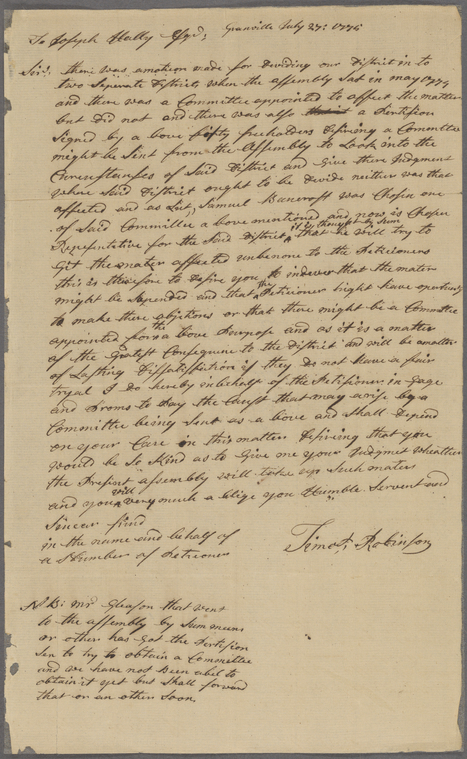 Granville July 27: 1776
To Joseph Hally Esqr;
Sir: there was a motion made for Deviding our District in to
two Seperate Districts when the assembly Sat in may 1774
and there was a Committee appointed to affect the matter
but did not and there was also a Pertision
Signed by a bove fifty freeholders Desiring a Committee
might be Sent from the Assembly to Look into the
Curcumstances of Said District and Give there Judgment
where Said District ought to be Devide neither was that
affected and as Lut, Samuel Bancroft was Chosen one
of Said Committee a bove mentioned and now is Chosen
it is thought by Sum
Representative for the Said District that he will try to
Git the mater affected unbenone to the Petitioners
this is therefore to desire you to indever that the mater
might be Sspended and that the Petitioner might have opertunity
to make there abjtions or that there might be a Committee
appointed for the a bove Purpose and as it is a matter
of the Gratest Consequence to the District and will be a matter
of Lasting Dissatisfection if they do not Have a fair
tryal I do hereby in behalf of the Petisioners in Gage
and Proms to Pay the Caust that may arise by a
Committee being Sent as a bove and Shall Depend
on your Care in this matter Desiring that you
would be So Kind as to Give me your Judgmet wheather
the Presint assembly will take up Such maters
and you will very much a blige you Humble Servent and
Sincear frind
in the name and behalf of
a Number of Petisioners
Timot, Robinson
NB: mr Gleason that went
to the assembly by Summuns
or other has Got the Pertision
Sen to try to obtain a Committee
and we have not Been abel to
obtain it yet but Shall forward
that or an other Soon